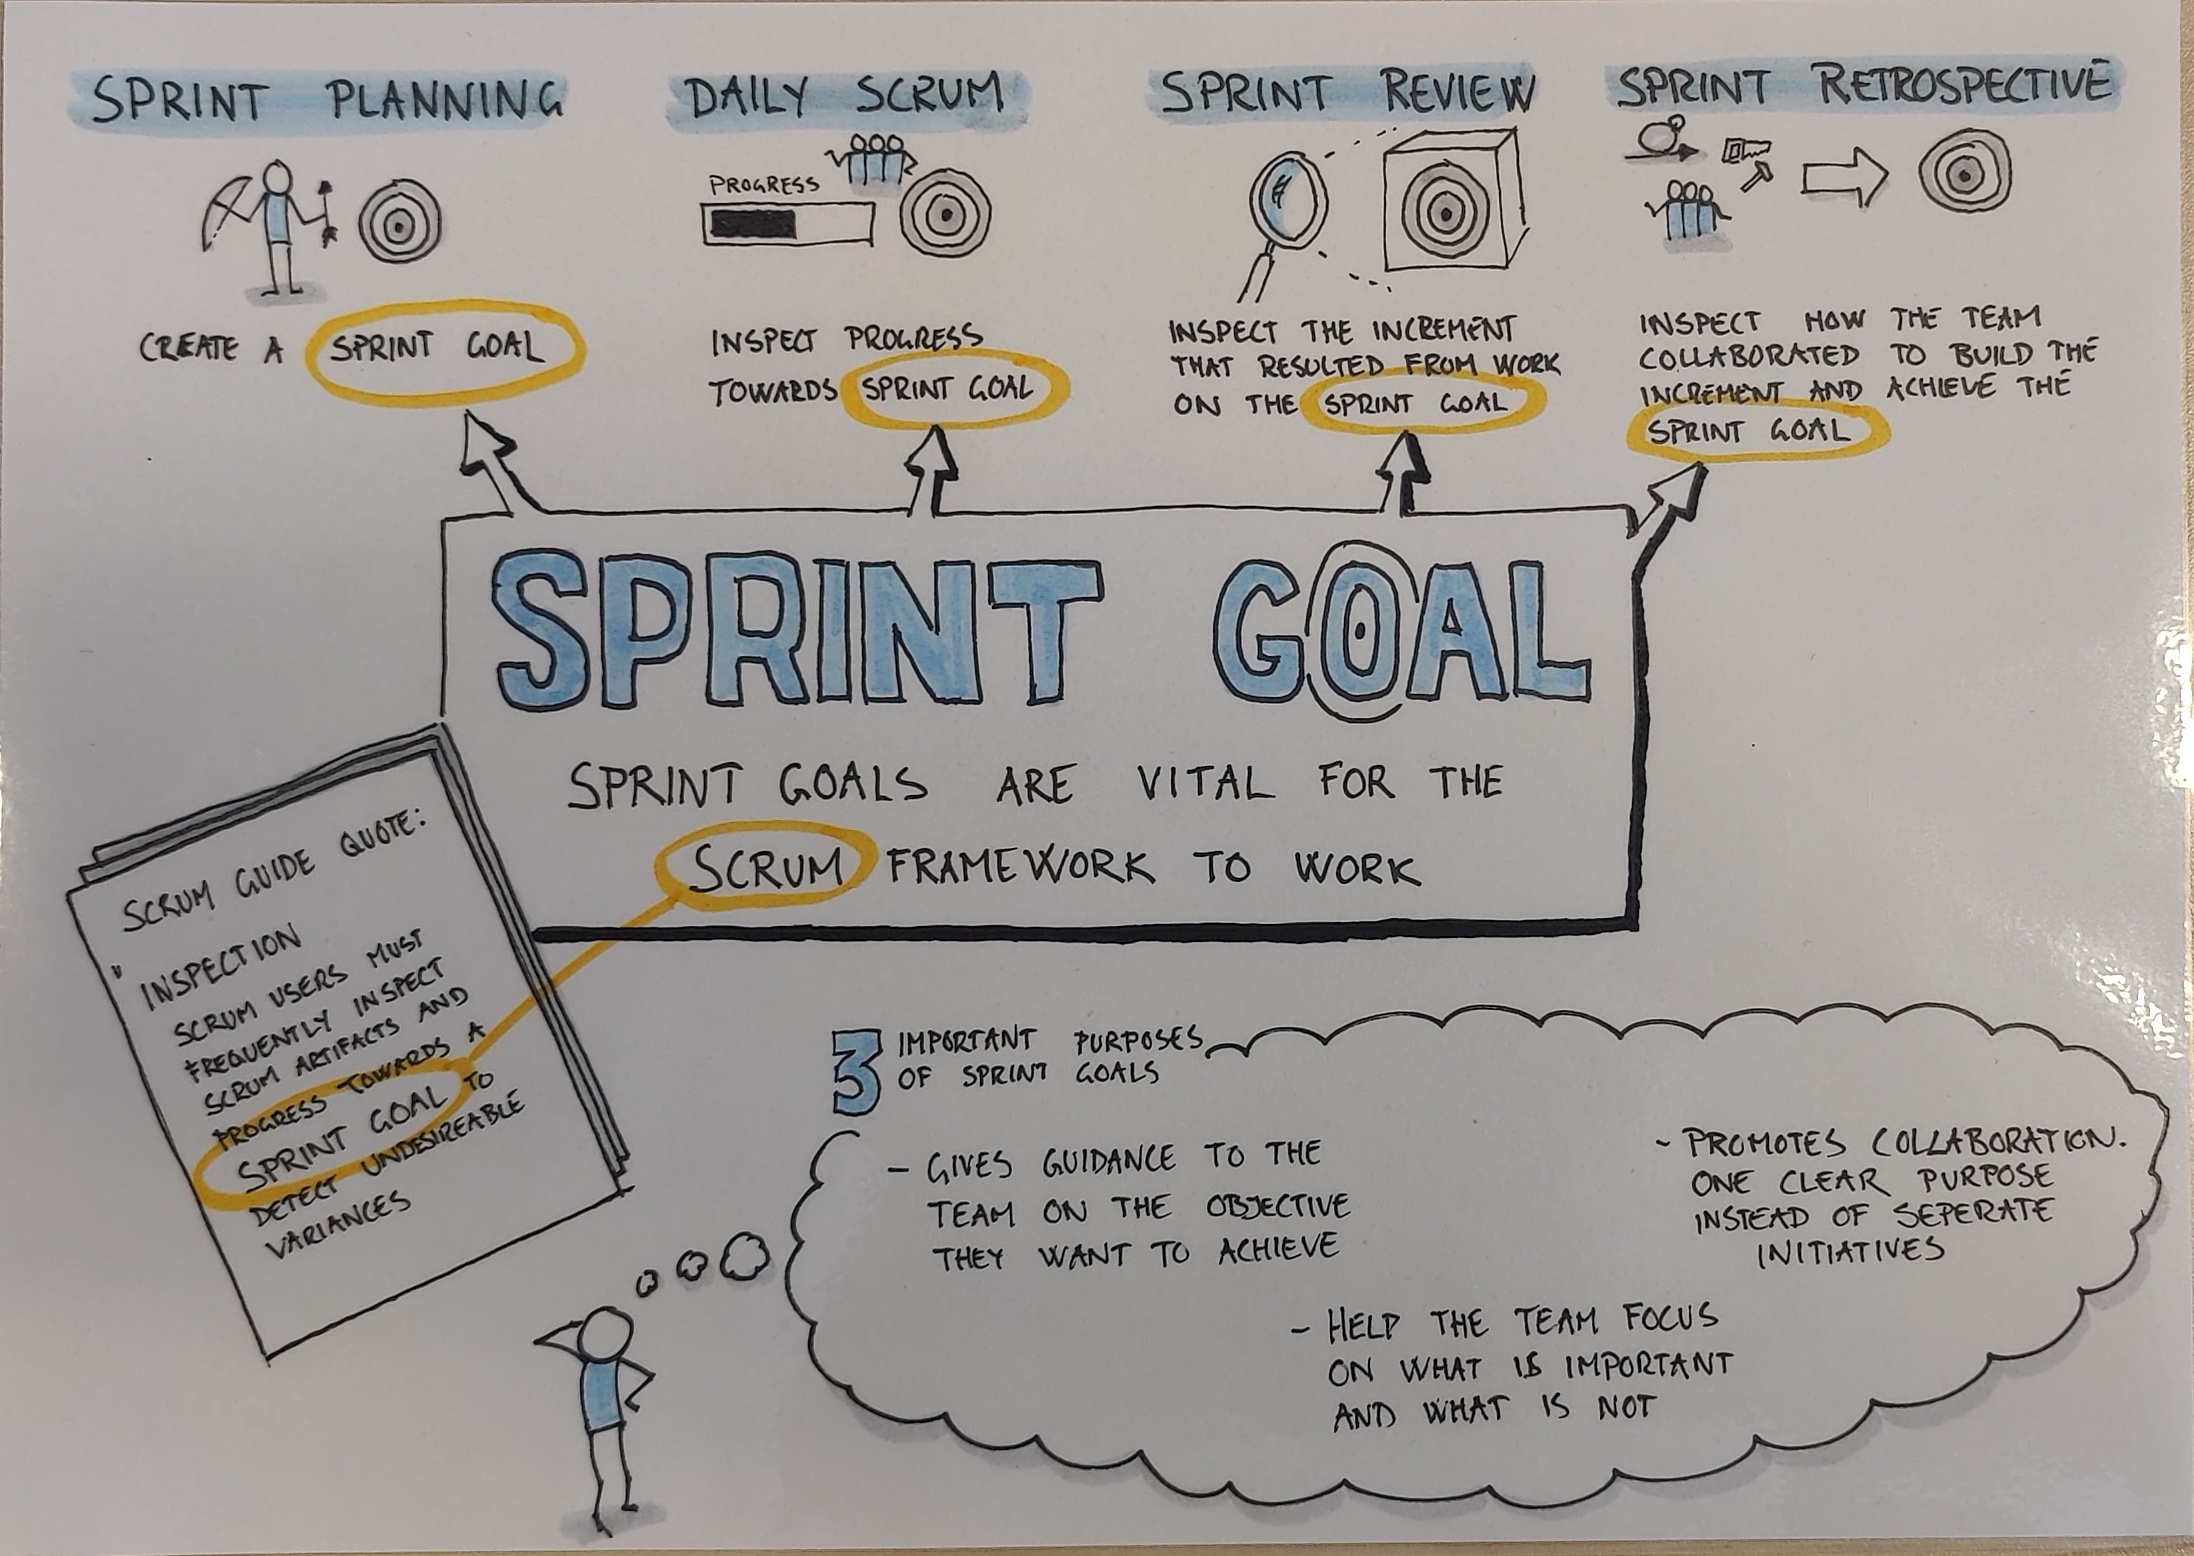 SPRINT PLANNING
CREATE A SPRINT GOAL
DAILY SCRUM
PROGRESS
INSPECT PROGRESS
TOWARDS SPRINT GOAL
SPRINT REVIEW
INSPECT THE INCREMENT
THAT RESULTED FROM WORK
ON THE SPRINT GOAL
SPRINT RETROSPECTIVE
INSPECT HOW THE TEAM
COLLABORATED TO BUILD THE
INCREMENT AND ACHIEVE THE
SPRINT GOAL
SPRINT GOAL
SPRINT GOALS ARE VITAL FOR THE
SCRUM FRAMEWORK TO WORK
SCRUM GUIDE QUOTE:
" INSPECTION
SCRUM USERS MUST
FREQUENTLY INSPECT
SCRUM ARTIFACTS AND
PROGRESS TOWARDS A
SPRINT GOAL TO
DETECT UNDESIREABLE
VARIANCES
3 IMPORTANT PURPOSES
OF SPRINT GOALS
- GIVES GUIDANCE TO THE
TEAM ON THE OBJECTIVE
THEY WANT TO ACHIEVE
- PROMOTES COLLABORATION.
ONE CLEAR PURPOSE
INSTEAD OF SEPERATE
INITIATIVES
- HELP THE TEAM FOCUS
ON WHAT IS IMPORTANT
AND WHAT IS NOT